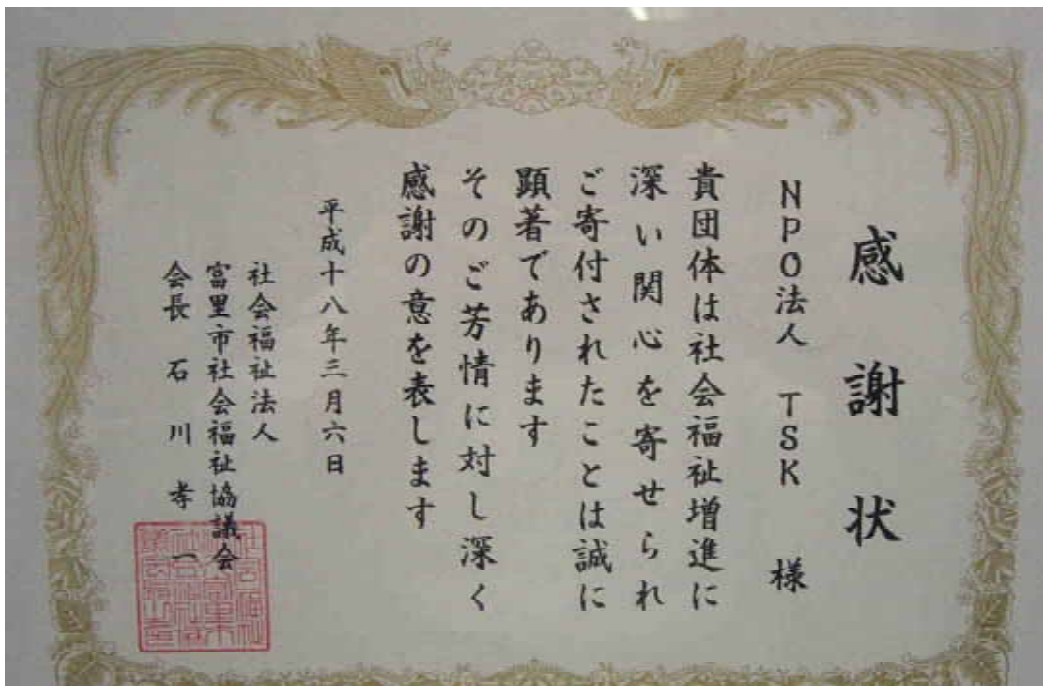 感謝状
NPO法人 TSK 様
貴団体は社会福祉増進に
深い関心を寄せられ
ご寄付されたことは誠に
顕著であります
そのご芳情に対し深く
感謝の意を表します
平成十八年三月六日
社会福祉法人
富里市社会福祉協議会
会長 石川孝一